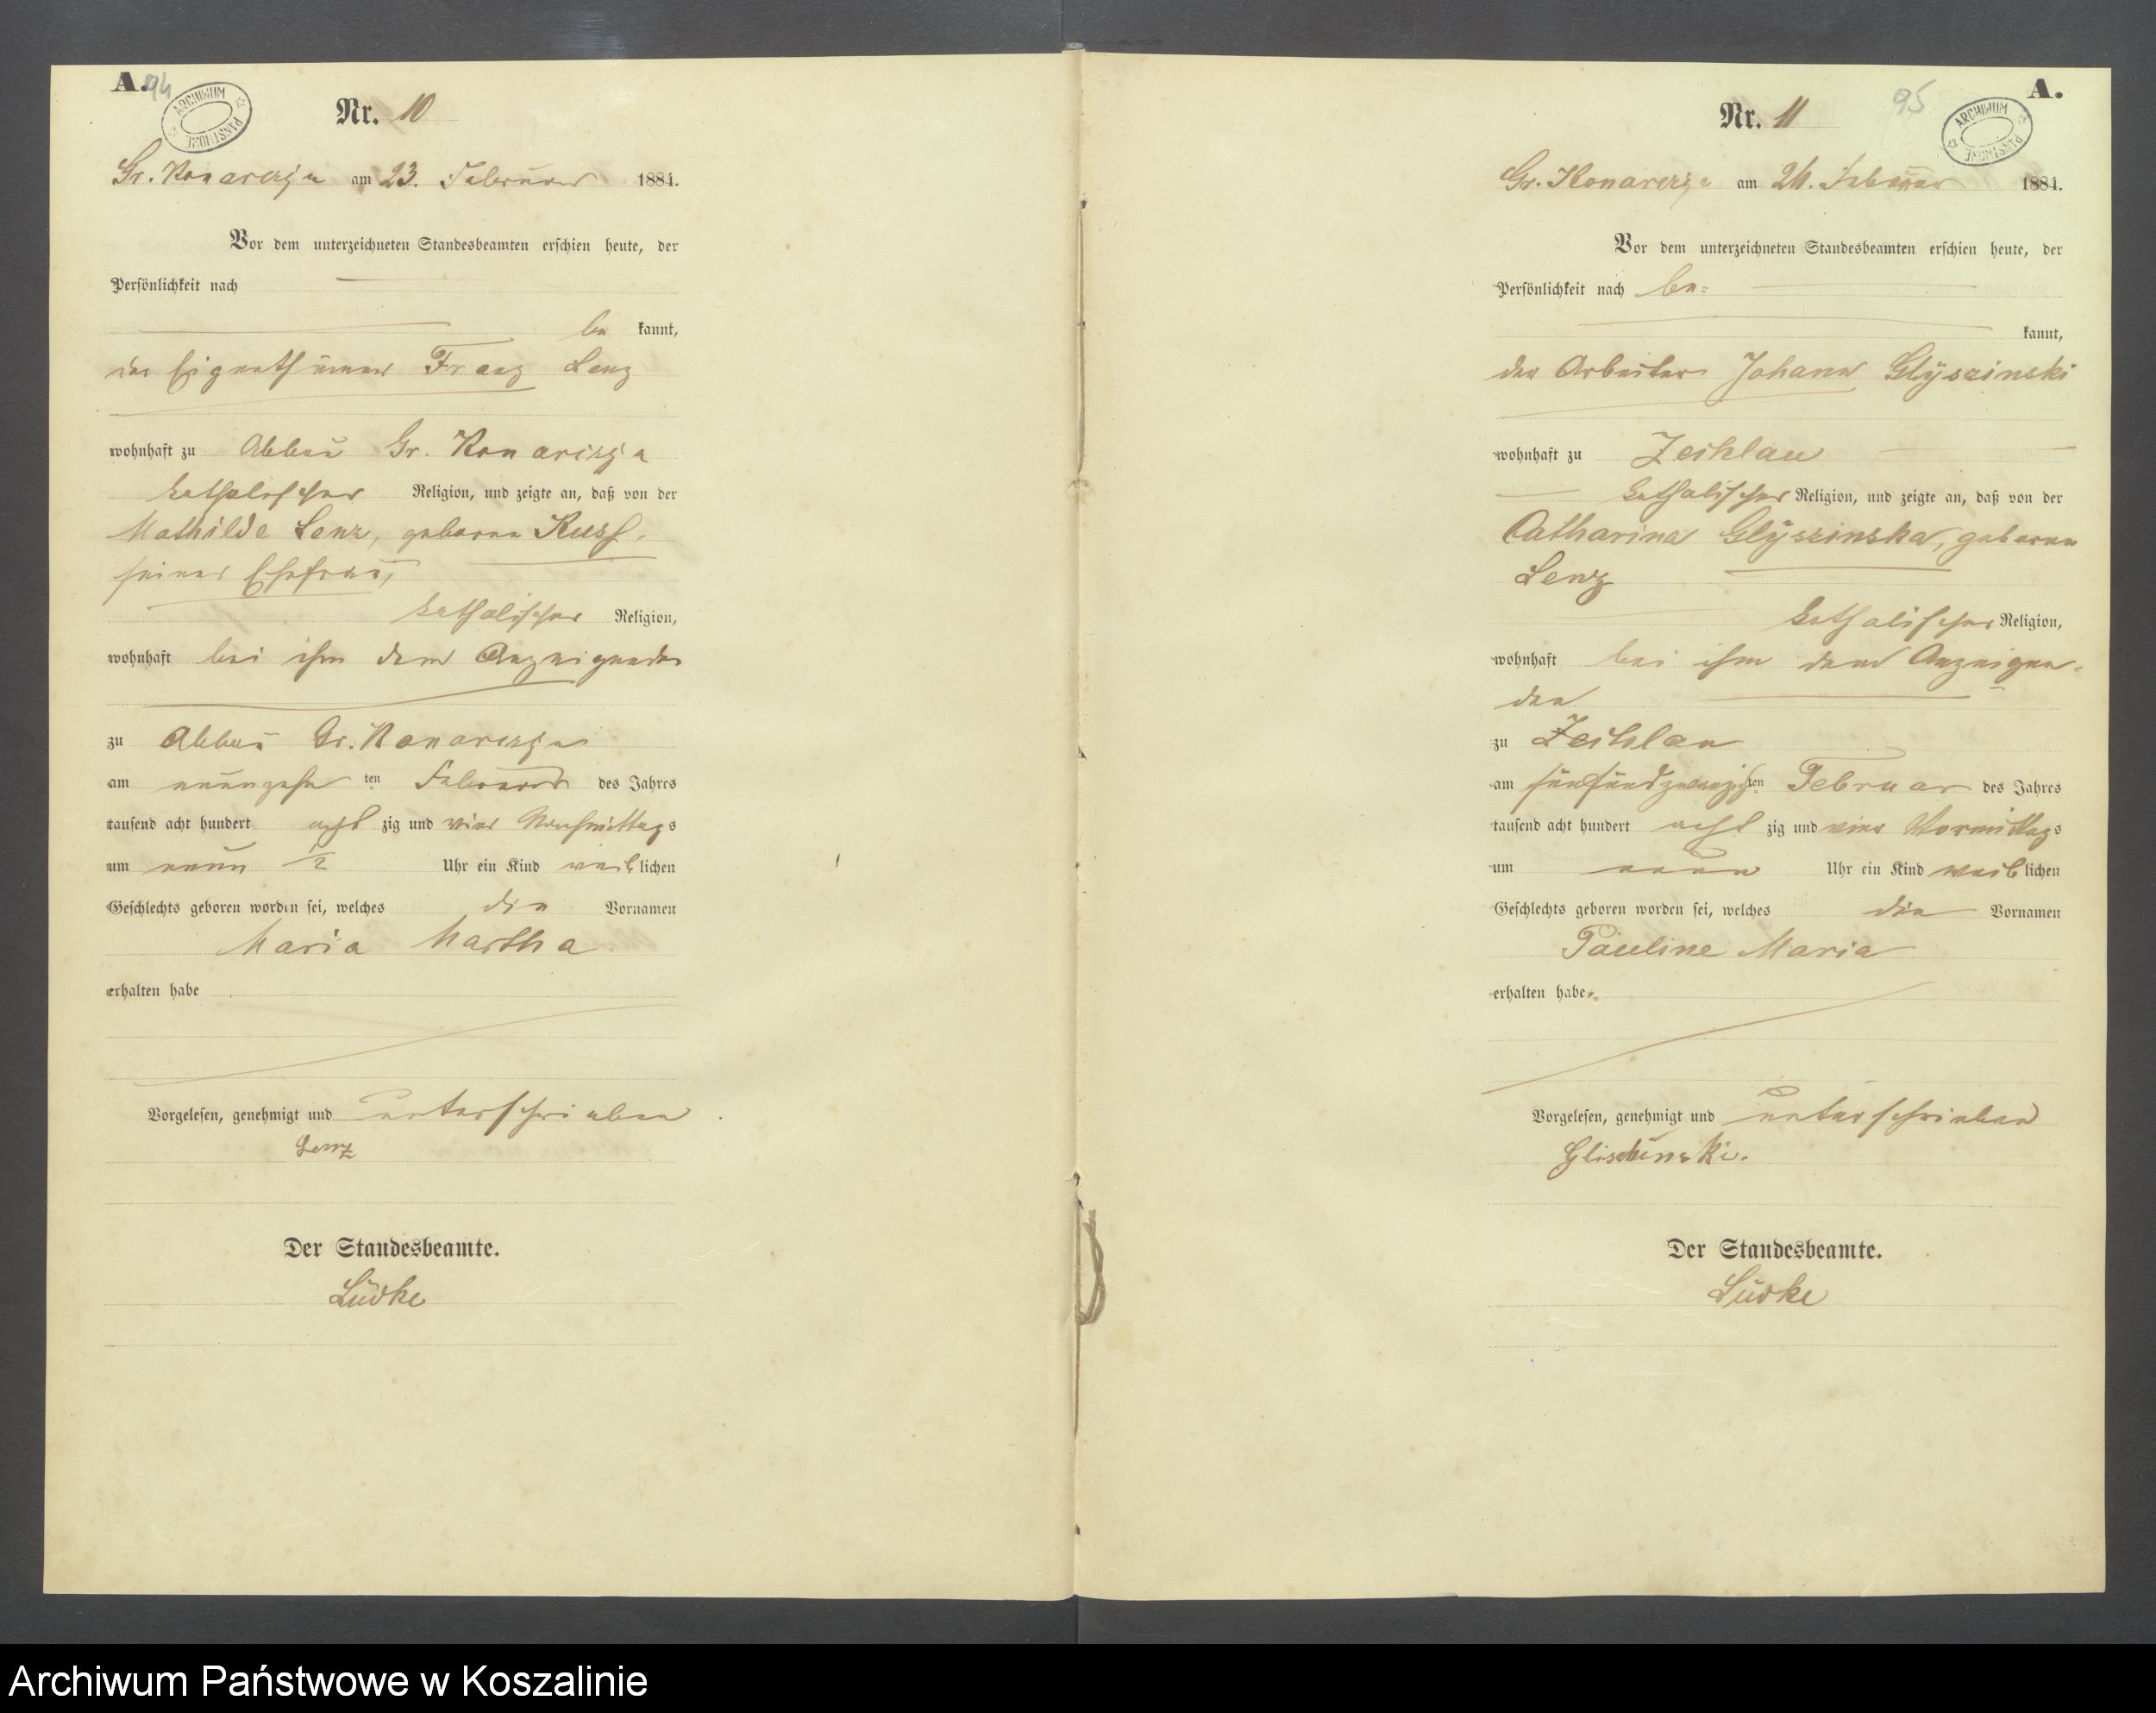 A. 94
ARCHIWUM PAŃSTWOWE
Nr. 10
Gr. Konarczyn am 23. Februar 1884.
Vor dem unterzeichneten Standesbeamten erschien heute, der
Persönlichkeit nach
be kannt,
der Eigenthümer Franz Lenz
wohnhaft zu Abbau Gr. Konarczyn
katholischer Religion, und zeigte an, daß von der
Mathilde Lenz, geborene
seiner Ehefrau,
katholischer Religion,
wohnhaft bei ihm dem Anzeigenden
zu Abbau Gr. Konarczyn
am neunzehn ten Februar des Jahres
tausend acht hundert acht zig und vier Nachmittags
um neun ½ Uhr ein Kind weib lichen
Geschlechts geboren worden sei, welches die Vornamen
Maria Martha
erhalten habe
Vorgelesen, genehmigt und unterschrieben
Lenz
Der Standesbeamte.
Lüdke
95 A.
ARCHIWUM PAŃSTWOWE
Nr. 11
Gr. Konarczyn am Februar 1884.
Vor dem unterzeichneten Standesbeamten erschien heute, der
Persönlichkeit nach be=
kannt,
der Arbeiter Johann Glyszinski
wohnhaft zu Zechlau
katholischer Religion, und zeigte an, daß von der
Catharina Glyszinska, geborene
Lenz
katholischer Religion,
wohnhaft bei ihm dem Anzeigen=
den
zu Zechlau
am fünfundzwanzigsten Februar des Jahres
tausend acht hundert acht zig und vier Vormittags
um neun Uhr ein Kind weib lichen
Geschlechts geboren worden sei, welches die Vornamen
Pauline Maria
erhalten habe.
Vorgelesen, genehmigt und unterschrieben
Glischinski.
Der Standesbeamte.
Lüdke
Archiwum Państwowe w Koszalinie